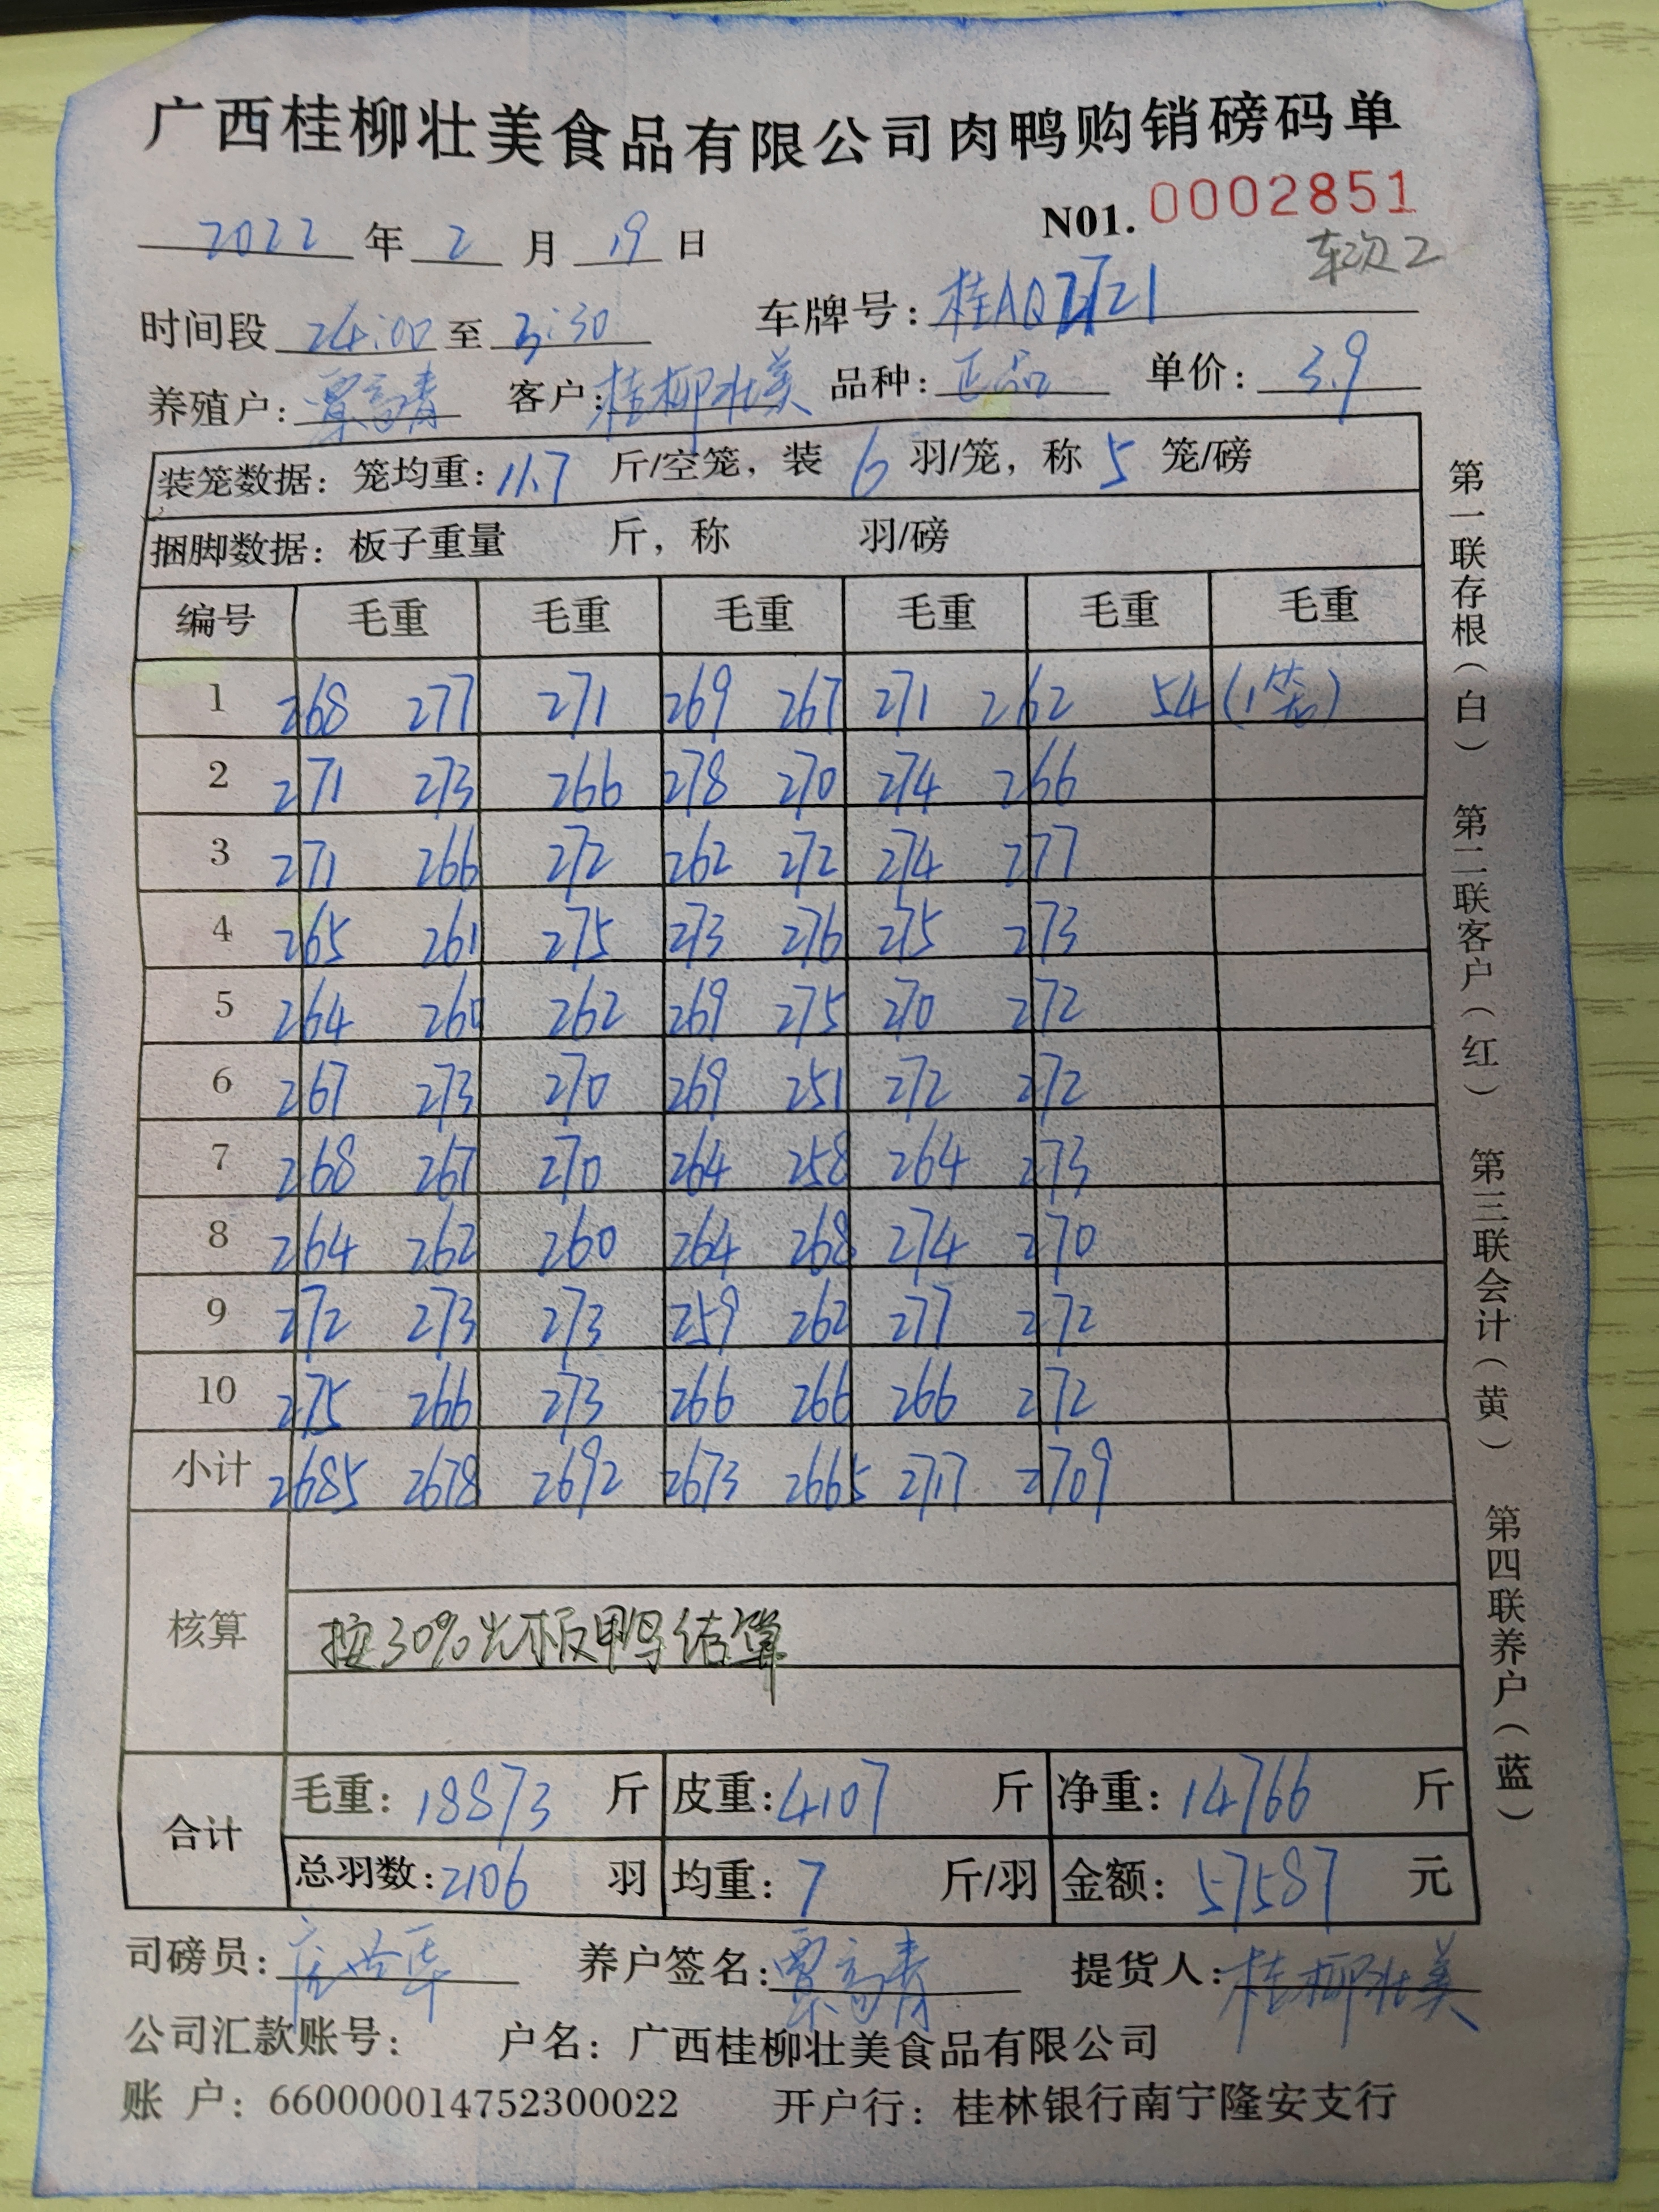 广西桂柳壮美食品有限公司肉鸭购销磅码单
N01. 0002851
2022 年 2 月 19 日
车次2
时间段 24:00 至 3:30 车牌号: 桂AQ
养殖户: 覃高青 客户: 桂柳壮美 品种: 正品 单价: 3.9
装笼数据: 笼均重: 11.7 斤/空笼, 装 6 羽/笼, 称 5 笼/磅
捆脚数据: 板子重量 斤, 称 羽/磅
编号 毛重 毛重 毛重 毛重 毛重 毛重
1 268 277 271 269 267 271 262 54 (1笼)
2 271 273 266 278 270 274 266
3 271 266 272 262 272 274 277
4 265 261 275 273 276 275 273
5 264 260 262 269 275 270 272
6 267 273 270 269 251 272 272
7 268 267 270 264 258 264 273
8 264 262 260 264 268 274 270
9 272 273 273 259 262 277 272
10 275 266 273 266 266 266 272
小计 2685 2678 2692 2673 2665 2717 2709
核算 按30%光板鸭结算
合计 毛重: 18873 斤 皮重: 4107 斤 净重: 14766 斤
总羽数: 2106 羽 均重: 7 斤/羽 金额: 57587 元
司磅员: 养户签名: 覃高青 提货人: 桂柳壮美
公司汇款账号: 户名: 广西桂柳壮美食品有限公司
账 户: 660000014752300022 开户行: 桂林银行南宁隆安支行
第一联存根(白) 第二联客户(红) 第三联会计(黄) 第四联养户(蓝)